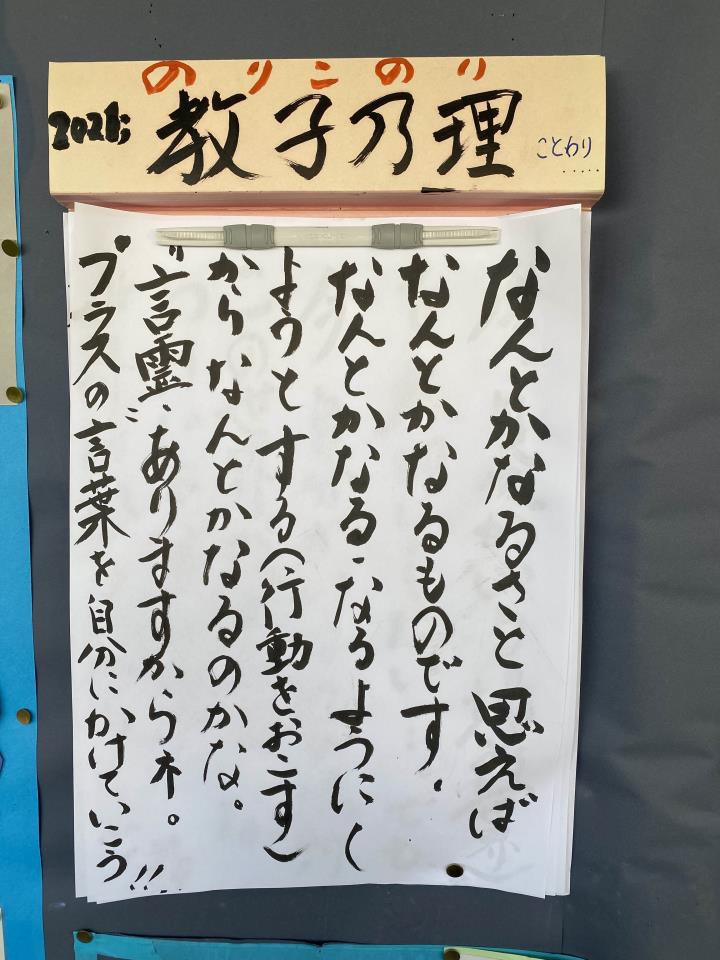 のりこのり
2026;
教子乃理
ことわり
なんとかなるさと思えば
なんとかなるものです.
なんとかなる·なるように(
ようとする(行動をおこす)
からなんとかなるのかな。
"言霊"ありますからネ。
プラスの言葉を自分にかけていこう!!